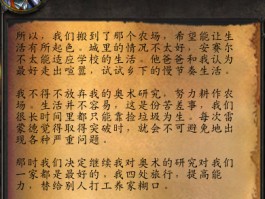 所以，我们搬到了那个农场，希望能让生
活有所起色。城里的情况不太好，安赛尔
不太能适应学校的生活。他爸爸和我认为
最好走出喧嚣，试试乡下的慢节奏生活。
我不得不放弃我的奥术研究，努力耕作农
场。生活并不容易，这是份苦差事，我们
很长时间里都只能靠捡垃圾为生。每次雷
蒙德觉得取得突破时，就会不可避免地出
现各种严重问题。
那时我们决定继续我对奥术的研究对我们
一家都是最好的，我四处旅行，提高能
力，替给别人打工养家糊口。